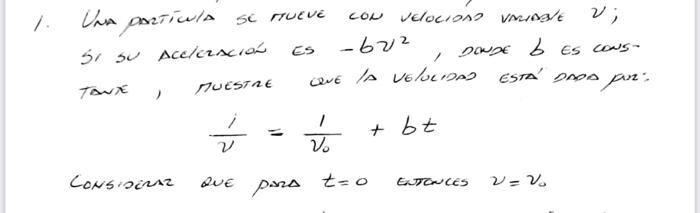 1. UNA PARTÍCULA SE MUEVE CON VELOCIDAD VARIABLE v;
SI SU ACELERACIÓN ES -bv², DONDE b ES CONS-
TANTE, MUESTRE QUE LA VELOCIDAD ESTÁ DADA POR:
1/v = 1/v₀ + bt
CONSIDERAR QUE PARA t=0 ENTONCES v=v₀